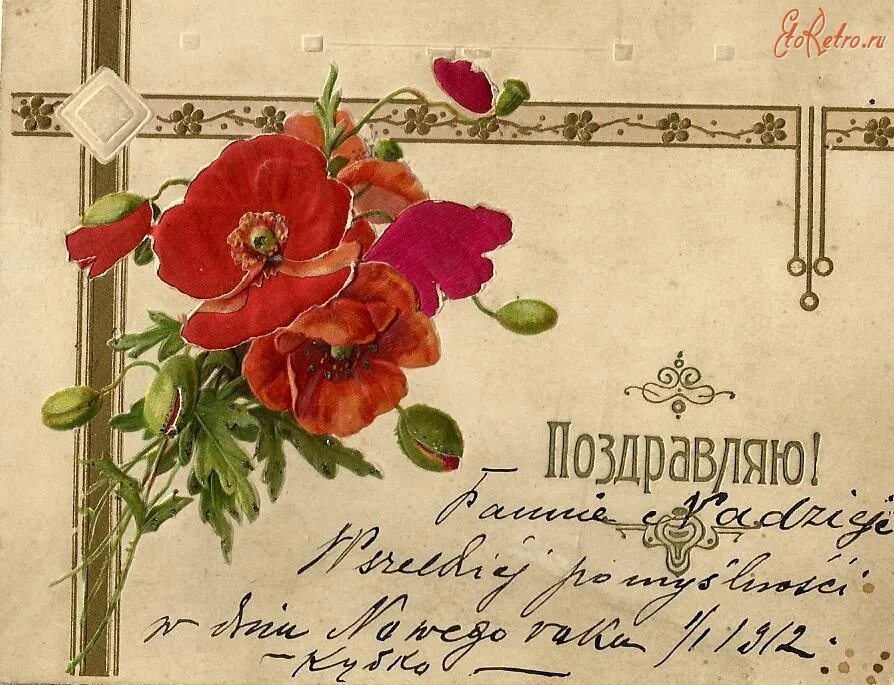 EtoRetro.ru
Поздравляю!
Pannie Nadzieje
Wszelkiej pomyślności
w dniu Nowego roku 1/I 1912.